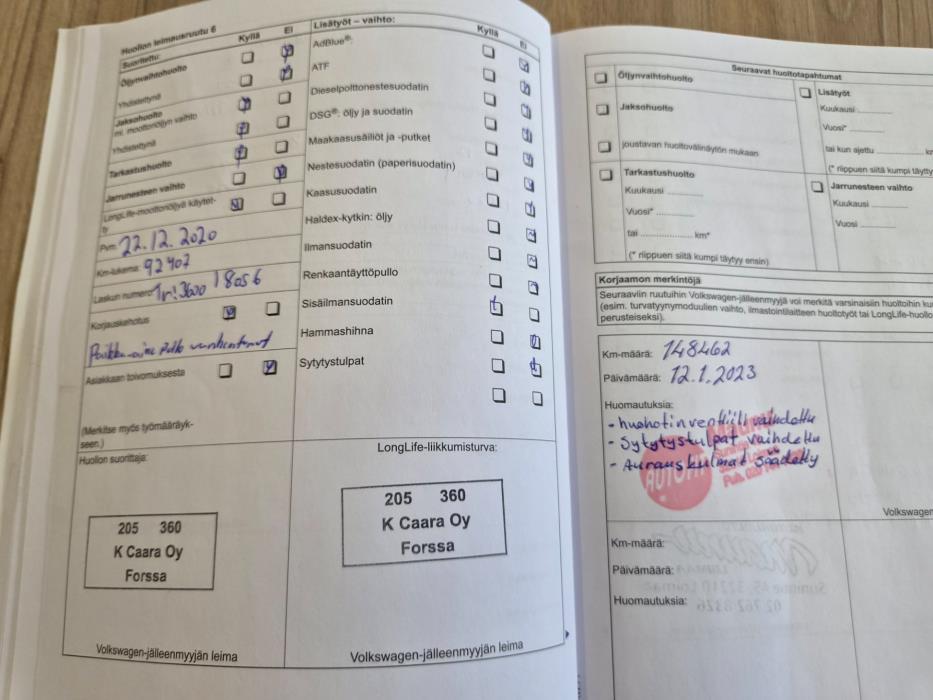 Huollon leimausruutu 6
Kyllä
Ei
Suoritettu:
Öljynvaihtohuolto
Yhdistettynä
Jaksohuolto
ml. moottoriöljyn vaihto
Yhdistettynä
Tarkastushuolto
Jarrunesteen vaihto
LongLife-moottoriöljyä käytet-
ty
Pvm: 22.12.2020
Km-lukema: 92407
Laskun numero: 18056
Korjauskehotus
Paikka-aine Pullo vanhentunut
Asiakkaan toivomuksesta
(Merkitse myös työmääräyk-
seen.)
Huollon suorittaja:
205 360
K Caara Oy
Forssa
Volkswagen-jälleenmyyjän leima
Lisätyöt – vaihto:
Kyllä
Ei
AdBlue®:
ATF
Dieselpolttonestesuodatin
DSG®: öljy ja suodatin
Maakaasusäiliöt ja -putket
Nestesuodatin (paperisuodatin)
Kaasusuodatin
Haldex-kytkin: öljy
Ilmansuodatin
Renkaantäyttöpullo
Sisäilmansuodatin
Hammashihna
Sytytystulpat
LongLife-liikkumisturva:
205 360
K Caara Oy
Forssa
Volkswagen-jälleenmyyjän leima
Seuraavat huoltotapahtumat
Öljynvaihtohuolto
Jaksohuolto
joustavan huoltovälinäytön mukaan
Tarkastushuolto
Kuukausi
Vuosi*
tai km*
(* riippuen siitä kumpi täytyy ensin)
Lisätyöt
Kuukausi
Vuosi*
tai kun ajettu
(* riippuen siitä kumpi täytty
Jarrunesteen vaihto
Kuukausi
Vuosi
Korjaamon merkintöjä
Seuraaviin ruutuihin Volkswagen-jälleenmyyjä voi merkitä varsinaisiin huoltoihin ku
(esim. turvatyynymoduulien vaihto, ilmastointilaitteen huoltotyöt tai LongLife-huollo
perusteiksi).
Km-määrä: 148462
Päivämäärä: 12.1.2023
Huomautuksia:
- huohotinventtiili vaihdettu
- Sytytystulpat vaihdettu
- Aurauskulmat säädetty
Volkswagen
Km-määrä:
Päivämäärä:
Huomautuksia: